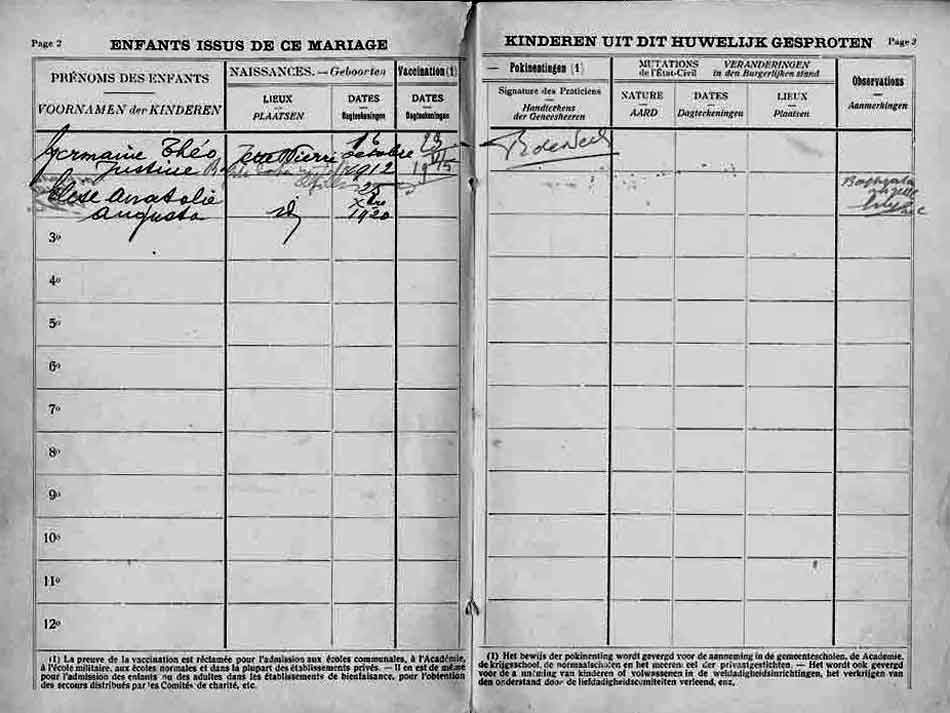 Page 2
ENFANTS ISSUS DE CE MARIAGE
PRÉNOMS DES ENFANTS
VOORNAMEN der KINDEREN
NAISSANCES. — Geboorten
LIEUX
PLAATSEN
DATES
Dagteekeningen
Vaccination (1)
DATES
Dagteekeningen
Germaine Théo
Justine
Jette St Pierre
16
octobre
1912
Elise Anatolie
Augusta
id
25
Xbre
1920
3º
4º
5º
6º
7º
8º
9º
10º
11º
12º
(1) La preuve de la vaccination est réclamée pour l'admission aux écoles communales, à l'Académie,
à l'école militaire, aux écoles normales et dans la plupart des établissements privés. — Il en est de même
pour l'admission des enfants ou des adultes dans les établissements de bienfaisance, pour l'obtention
des secours distribués par les Comités de charité, etc.
KINDEREN UIT DIT HUWELIJK GESPROTEN
Page 3
— Pokinentingen (1)
Signature des Praticiens
Handteekens
der Geneesheeren
MUTATIONS
de l'État-Civil
VERANDERINGEN
in den Burgerlijken stand
NATURE
AARD
DATES
Dagteekeningen
LIEUX
Plaatsen
Observations
Aanmerkingen
(1) Het bewijs der pokinenting wordt gevergd voor de aanneming in de gemeentescholen, de Academie,
de krijgsschool, de normaalscholen en het meerendeel der privaatgestichten. — Het wordt ook gevergd
voor de aanneming van kinderen of volwassenen in de weldadigheidsinrichtingen, het verkrijgen van
den onderstand door de liefdadigheidscomiteiten verleend, enz.